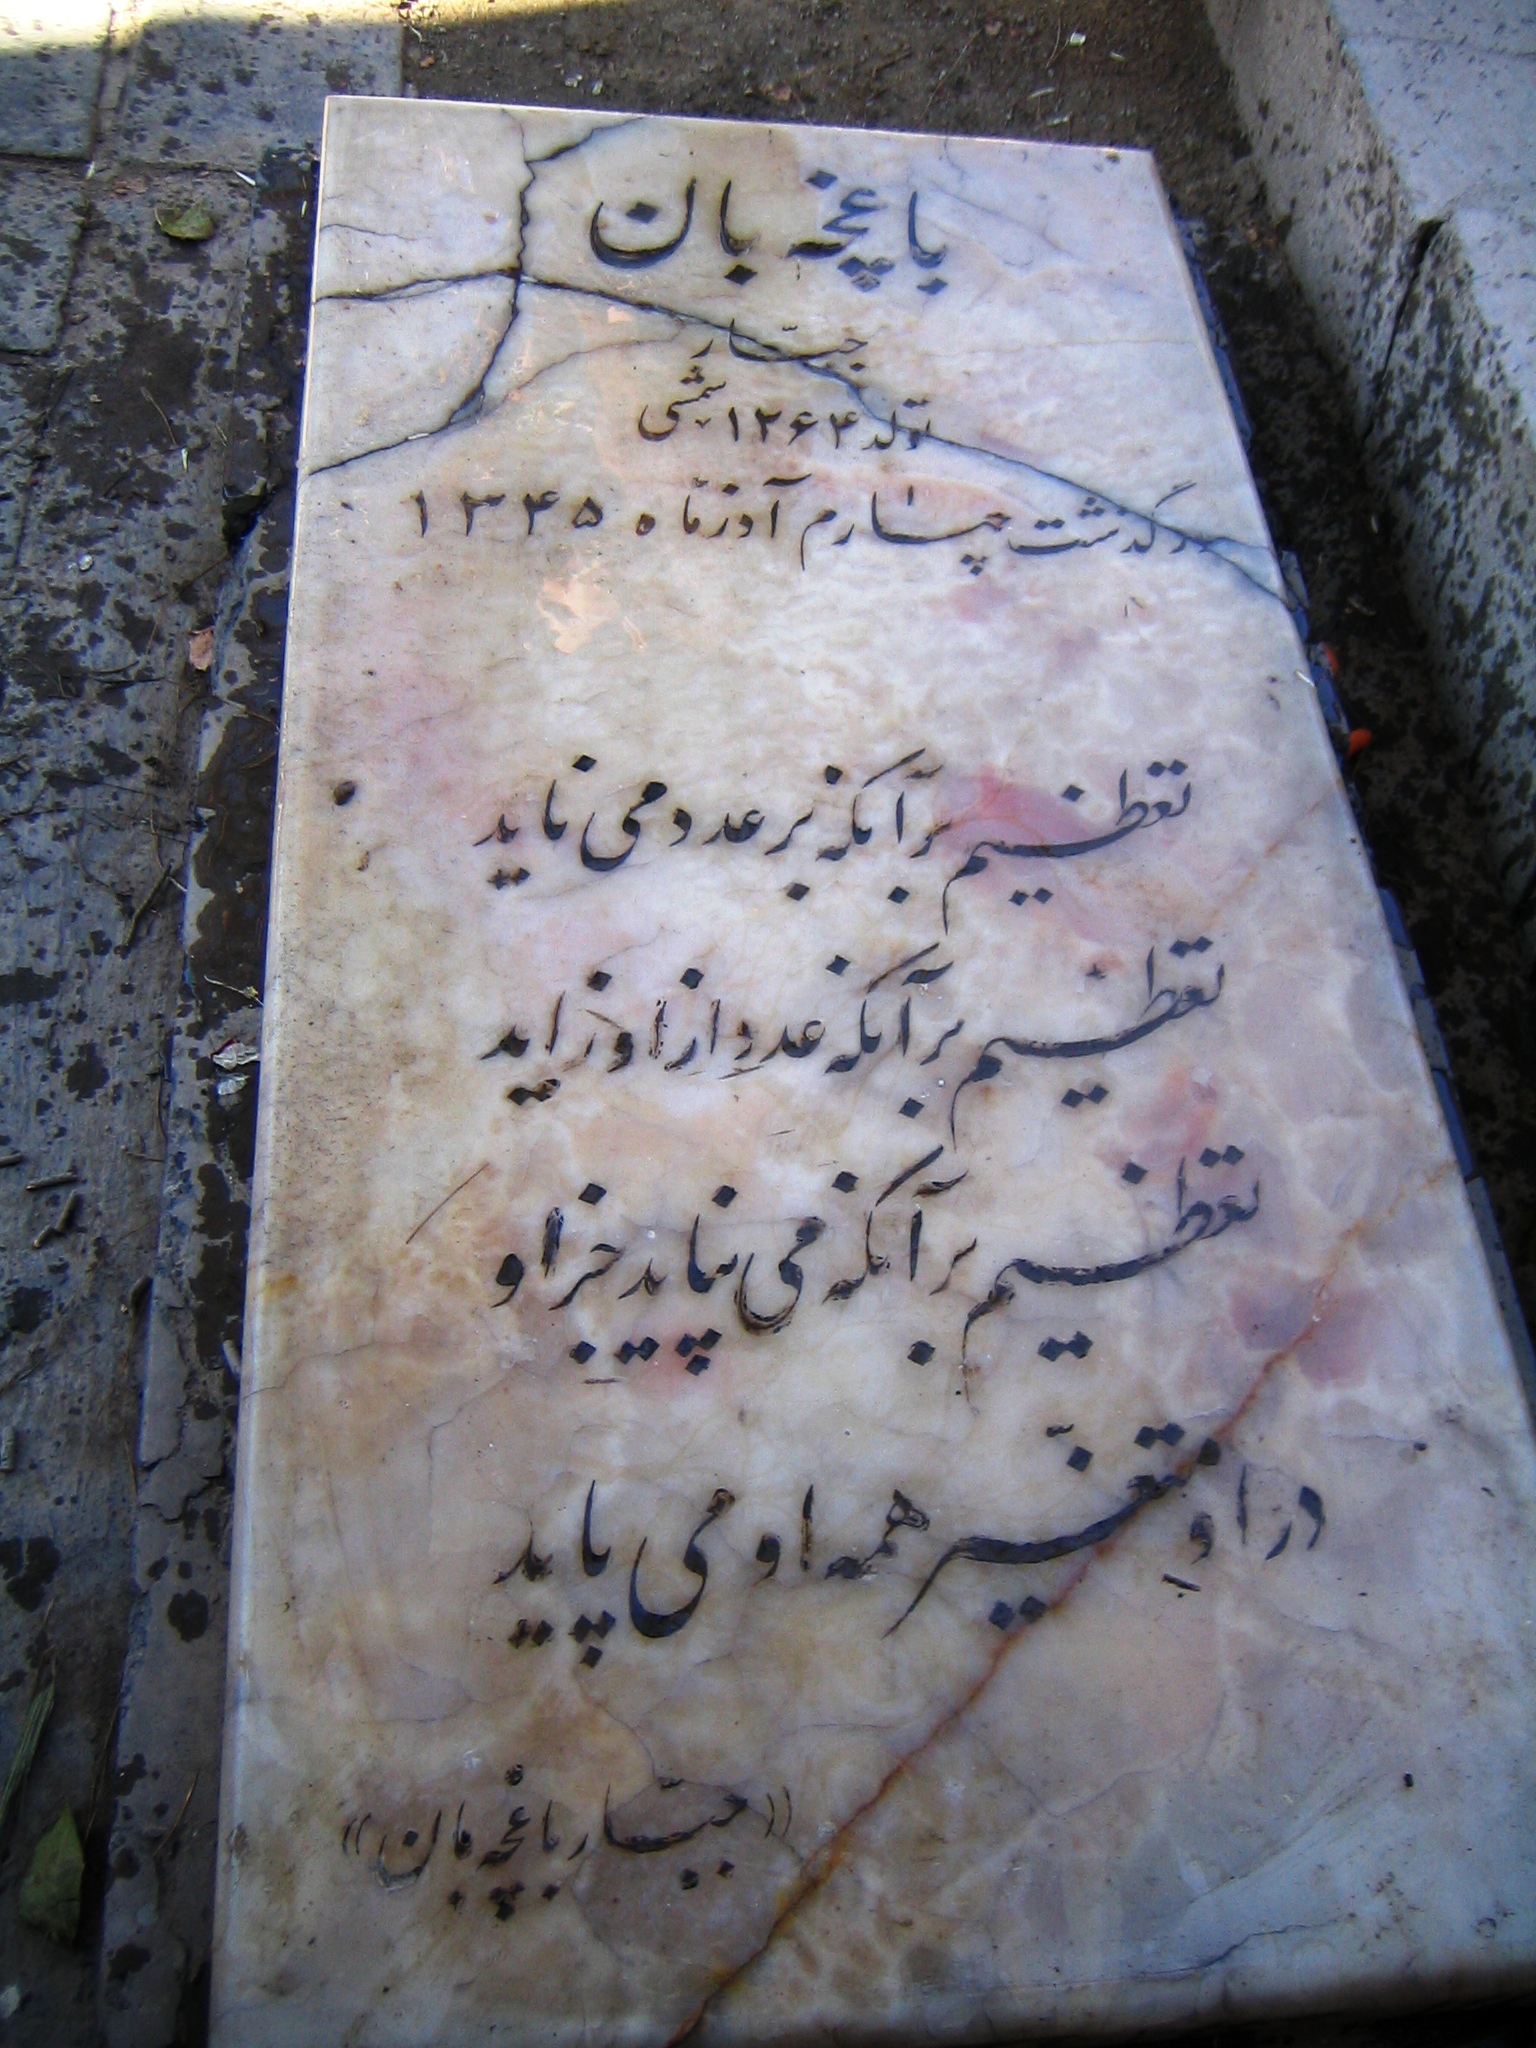 باغچه بان
جبّار
تولد ۱۲۶۴ شمسی
درگذشت چهارم آذرماه ۱۳۴۵
تعظیم بر آنکه بر عدد می ناید
تعظیم بر آنکه عددِ از او زاید
تعظیم بر آنکه می نپاید جز او
در او تغیّر همه او می پاید
«جبّار باغچه بان»